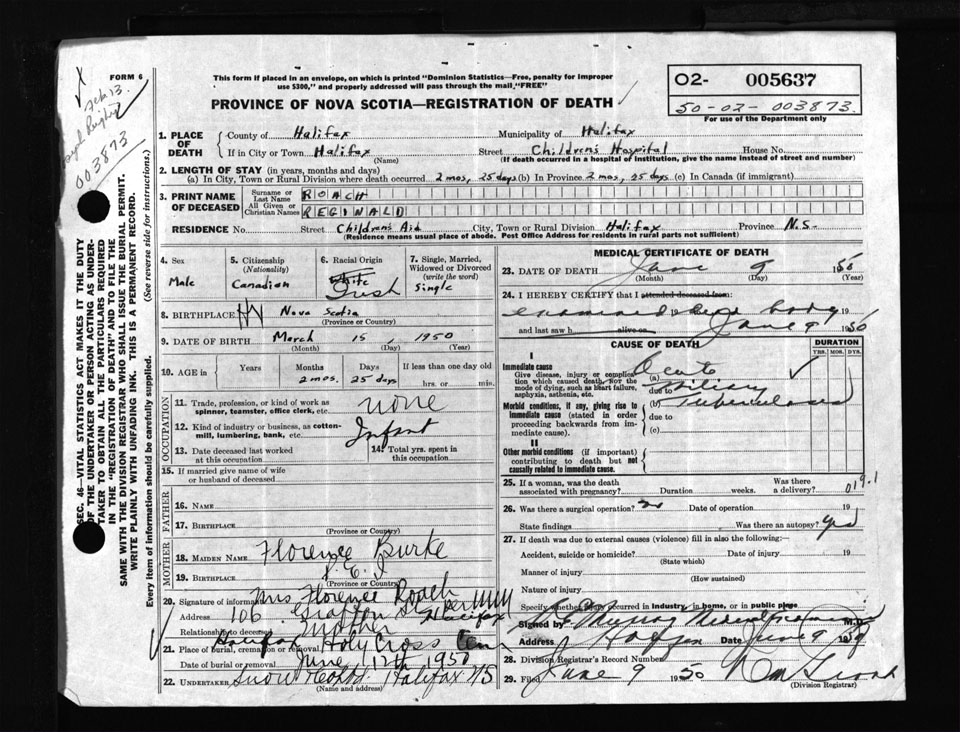 FORM 6
Feb 13
003873
This form if placed in an envelope, on which is printed "Dominion Statistics—Free, penalty for improper
use $300," and properly addressed will pass through the mail, "FREE"
PROVINCE OF NOVA SCOTIA—REGISTRATION OF DEATH
O2- 005637
50-02-003873
For use of the Department only
SEC. 46—VITAL STATISTICS ACT MAKES IT THE DUTY
OF THE UNDERTAKER OR PERSON ACTING AS UNDER-
TAKER TO OBTAIN ALL THE PARTICULARS REQUIRED
IN THE "REGISTRATION OF DEATH" AND TO FILE THE
SAME WITH THE DIVISION REGISTRAR WHO SHALL ISSUE THE BURIAL PERMIT.
WRITE PLAINLY WITH UNFADING INK. THIS IS A PERMANENT RECORD.
Every item of information should be carefully supplied. (See reverse side for instructions.)
1. PLACE OF DEATH County of Halifax Municipality of Halifax
If in City or Town Halifax Street Childrens Hospital House No.
(Name) (If death occurred in a hospital or institution, give the name instead of street and number)
2. LENGTH OF STAY (in years, months and days)
(a) In City, Town or Rural Division where death occurred 2 mos, 25 days (b) In Province 2 mos, 25 days (c) In Canada (if immigrant)
3. PRINT NAME OF DECEASED Surname or Last Name ROACH
All Given or Christian Names REGINALD
RESIDENCE No. Street Childrens Aid City, Town or Rural Division Halifax Province N.S.
(Residence means usual place of abode. Post Office Address for residents in rural parts not sufficient)
4. Sex Male
5. Citizenship (Nationality) Canadian
6. Racial Origin White Irish
7. Single, Married, Widowed or Divorced (write the word) Single
8. BIRTHPLACE Nova Scotia
(Province or Country)
9. DATE OF BIRTH March 15, 1950
(Month) (Day) (Year)
10. AGE in Years Months 2 mos. Days 25 days If less than one day hrs. or min.
OCCUPATION
11. Trade, profession, or kind of work as spinner, teamster, office clerk, etc. none
12. Kind of industry or business, as cotton-mill, lumbering, bank, etc. Infant
13. Date deceased last worked at this occupation
14. Total yrs. spent in this occupation
15. If married give name of wife or husband of deceased
FATHER
16. NAME
17. BIRTHPLACE
(Province or Country)
MOTHER
18. MAIDEN NAME Florence Burke
19. BIRTHPLACE P.E.I
(Province or Country)
20. Signature of informant Mrs Florence Roach
Address 106 Grafton St Halifax
Relationship to deceased Mother
21. Place of burial, cremation or removal Halifax Holy Cross Cem
Date of burial or removal June 12th 1950
22. UNDERTAKER Snow Halifax NS
(Name and address)
MEDICAL CERTIFICATE OF DEATH
23. DATE OF DEATH June 9 1950
(Month) (Day) (Year)
24. I HEREBY CERTIFY that I attended deceased from:
examined body 19
and last saw h alive on June 9 1950
CAUSE OF DEATH DURATION
YRS. MOS. DYS.
I
Immediate cause (a) Acute
Give disease, injury or complication which caused death, not the mode of dying, such as heart failure, asphyxia, asthenia, etc.
due to Miliary
Morbid conditions, if any, giving rise to immediate cause (stated in order proceeding backwards from immediate cause).
(b) Tuberculosis
due to
(c)
II
Other morbid conditions (if important) contributing to death but not causally related to immediate cause.
25. If a woman, was the death associated with pregnancy? Duration weeks. Was there a delivery? 019.1
26. Was there a surgical operation? no Date of operation 19
State findings Was there an autopsy? yes
27. If death was due to external causes (violence) fill in also the following:
Accident, suicide or homicide? Date of injury 19
(State which)
Manner of injury
(How sustained)
Nature of injury
Specify whether injury occurred in industry, in home, or in public place
Signed by Murray Medical Examiner M.D.
Address Halifax Date June 9 19
28. Division Registrar's Record Number
29. Filed June 9 1950
(Division Registrar)